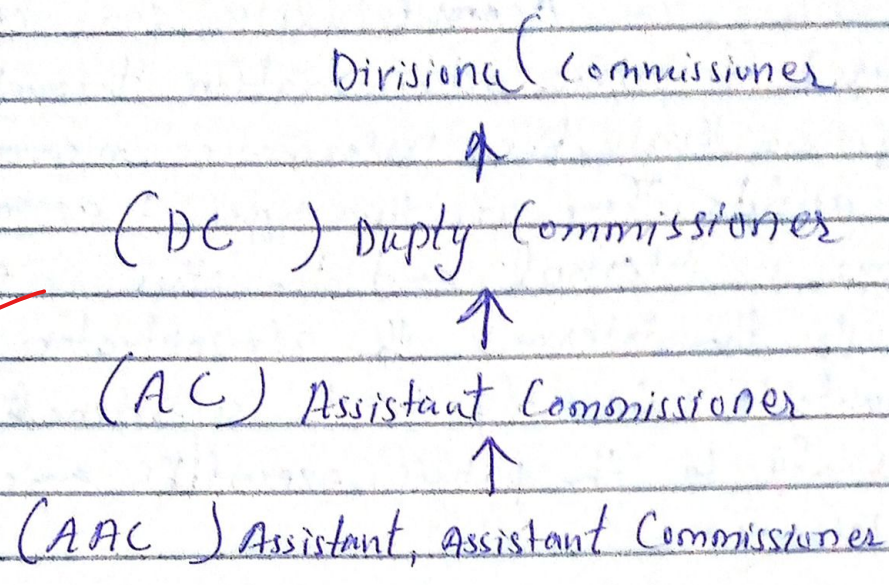 Divisional Commissioner
(DC ) Duptly Commissioner
(AC) Assistant Commissioner
(AAC ) Assistant, Assistant Commissioner